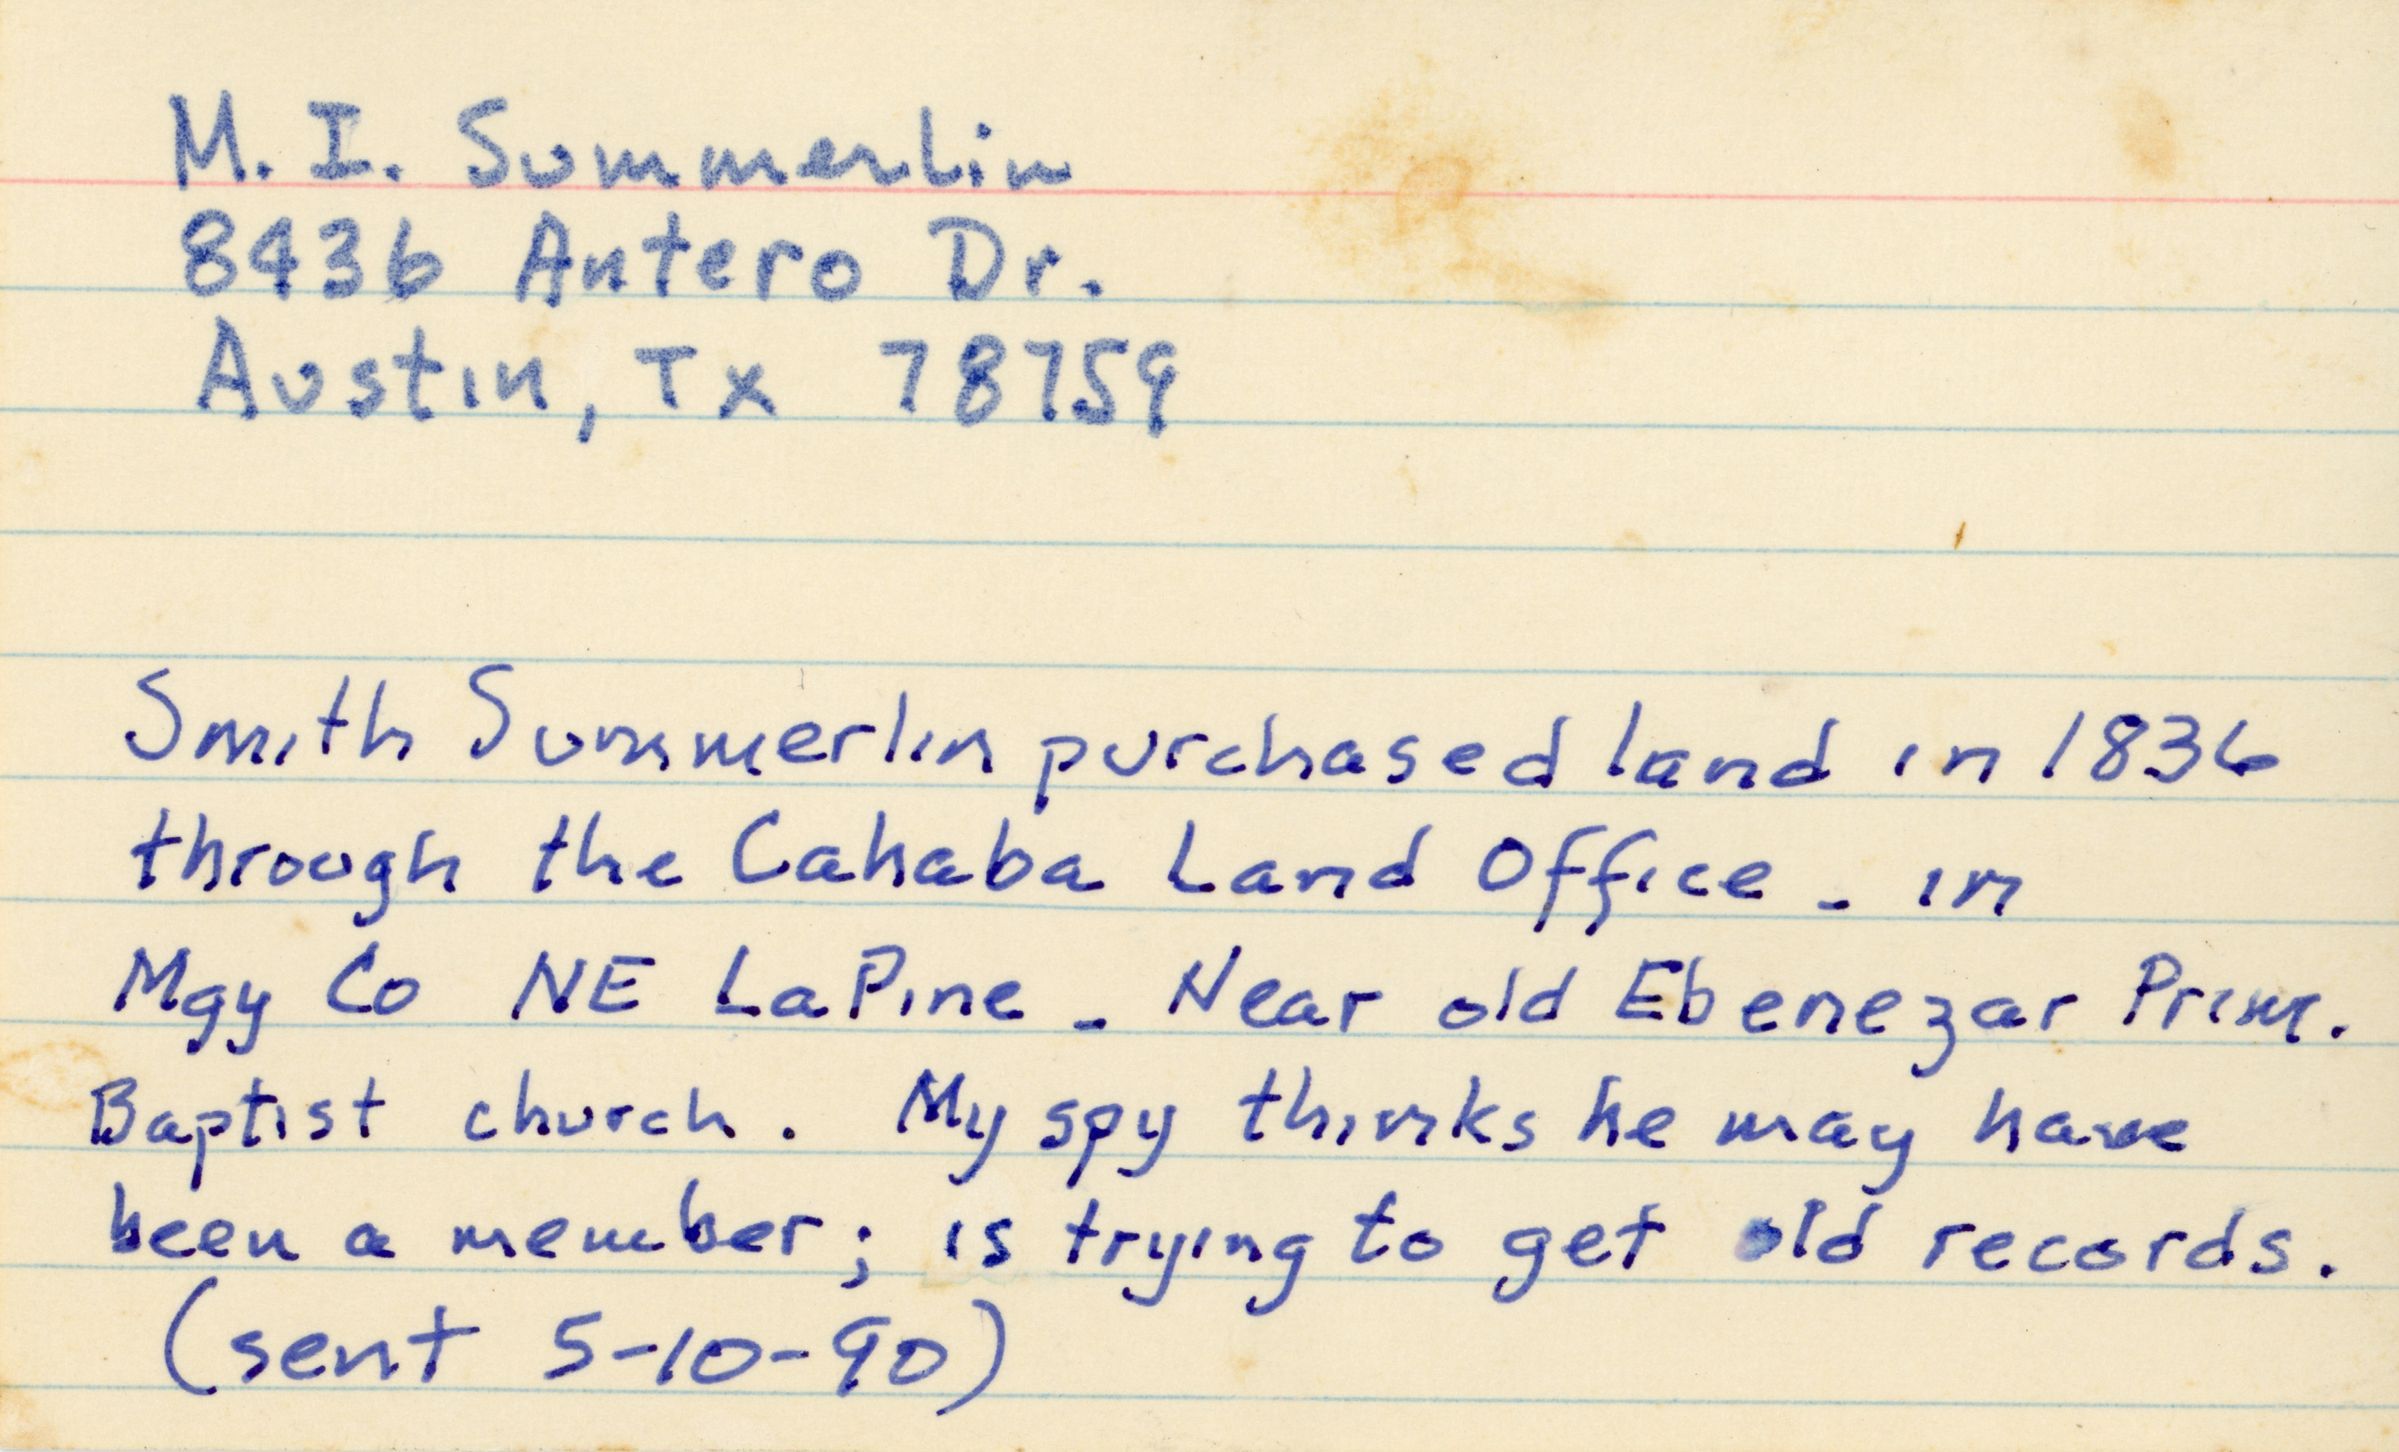 M. I. Summerlin
8436 Antero Dr.
Austin, Tx 78759
Smith Summerlin purchased land in 1836
through the Cahaba Land Office - in
Mgy Co NE LaPine - Near old Ebenezar Prim.
Baptist church. My spy thinks he may have
been a member; is trying to get old records.
(sent 5-10-90)